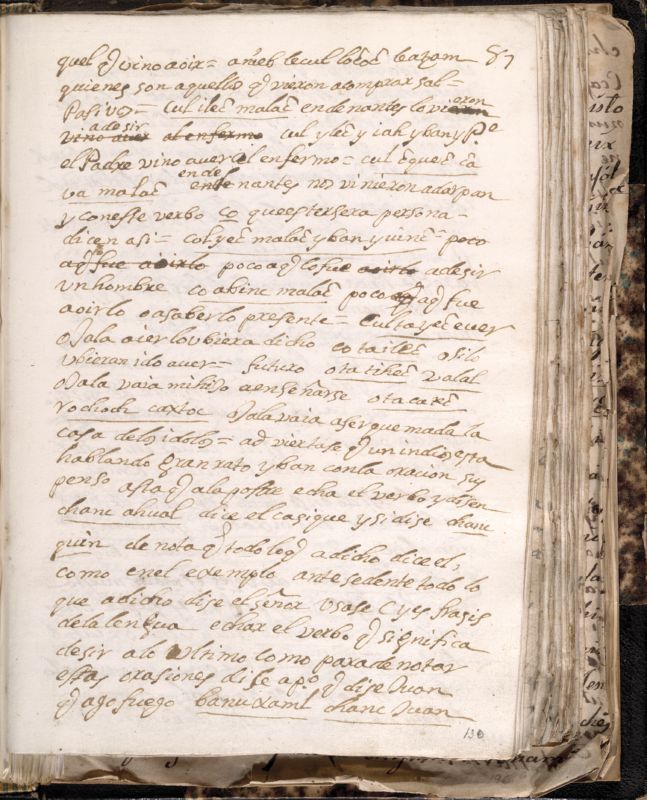 quel q̃ vino a oir = ameb lecul lotoc̃ batzam 87
quienes son aquellos q̃ vieron a comprar sal =
Pasivo = cul ilec̃ malac̃ en denantes lo vieron
vino a desir al enfermo cul ylec̃ y iah y ban y Pe
el Padre vino a ver al enfermo = cul c̃quec̃ c̃a
va malac̃ ende nantes nos vinieron a dar pan
y con este verbo co que es tersera persona =
dicen asi = col yec̃ malac̃ y ban y uinc̃ = poco
a q̃ fue a oirlo poco a q̃ lo fue a oirlo a desir
vn hombre co abinc malac̃ poco a q̃ fue
a oirlo o a saberlo presente = cul ta yec̃ cuer
oJala aier lo vbiera dicho co ta ilec̃ o si lo
vbieran ido a ver = futuro o ta tihec̃ valal
oJala vaia mi hiJo a enseñarse o ta caxc̃
rochoch caxtoc oJala vaia a ser quemada la
casa de los idolos = ad viertase q̃ un indio esta
hablando gran rato y ban con la oracion sus
penso asta q̃ a la postre echa el verbo y disen
chanc ahual dice el casique y si dise chanc
quin de nota q̃ todo lo q̃ a dicho dice el,
como en el exemplo ante sedente todo lo
que a dicho dise el señor Vsase C yes frasis
de la lengua echar el verbo q̃ significa
desir a lo vltimo como para de notar
estas orasiones dise a po q̃ dise Juan
q̃ ago fuego banu xaml chanc Juan
130